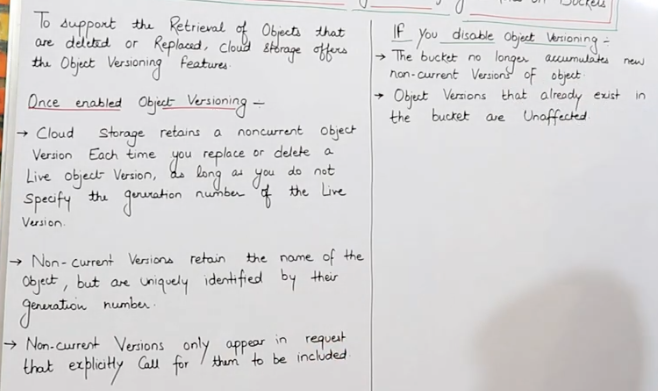 on Buckets
To support the Retrieval of Objects that
are deleted or Replaced, Cloud Storage offers
the Object Versioning features.
Once enabled Object Versioning -
→ Cloud Storage retains a noncurrent object
Version Each time you replace or delete a
Live object Version, as long as you do not
Specify the generation number of the Live
Version.
→ Non-current Versions retain the name of the
Object, but are uniquely identified by their
generation number.
→ Non-current Versions only appear in request
that explicitly Call for them to be included.
If You disable Object Versioning :-
→ The bucket no longer accumulates new
non-current Versions of object.
→ Object Versions that already exist in
the bucket are Unaffected.